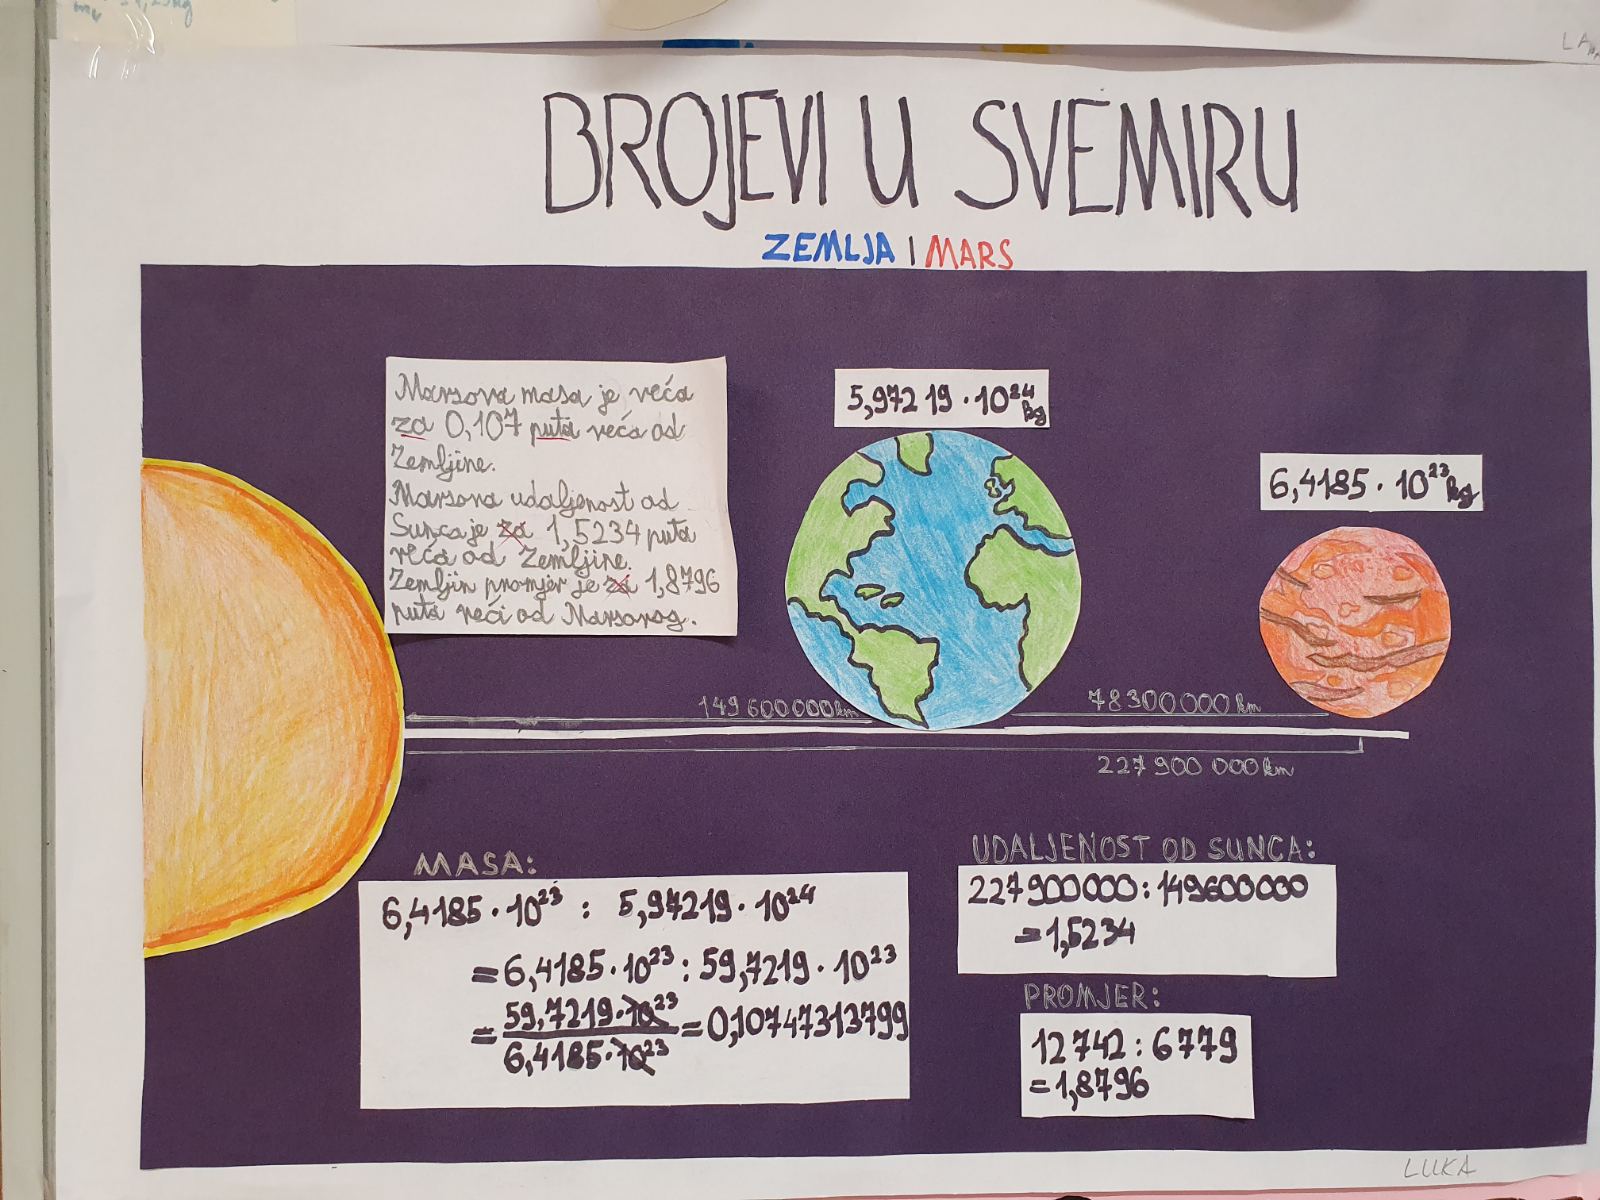 BROJEVI U SVEMIRU
ZEMLJA I MARS
Marsova masa je veća
za 0,107 puta veća od
Zemljine.
Marsova udaljenost od
Sunca je za 1,5234 puta
veća od Zemljine.
Zemljin promjer je za 1,8796
puta veći od Marsovog.
5,97219 · 10²⁴ kg
6,4185 · 10²³ kg
149 600 000 km
78 300 000 km
227 900 000 km
MASA:
6,4185 · 10²³ : 5,97219 · 10²⁴
= 6,4185 · 10²³ : 59,7219 · 10²³
= 59,7219 · 10²³ / 6,4185 · 10²³ = 0,10747313799
UDALJENOST OD SUNCA:
227900000 : 149600000
= 1,5234
PROMJER:
12742 : 6779
= 1,8796
LUKA